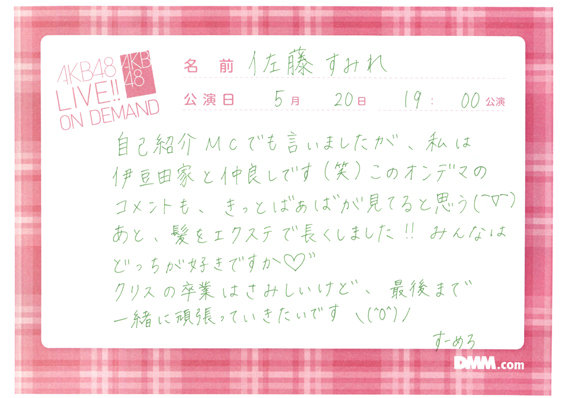 AKB48
LIVE!!
ON DEMAND
AKB
48
名前 佐藤 すみれ
公演日 5月 20日 19:00公演
自己紹介MCでも言いましたが、私は
伊豆田家と仲良しです(笑)このオンデマの
コメントも、きっとばぁばが見てると思う(^▽^)
あと、髪をエクステで長くしました!! みんなは
どっちが好きですか♡゛
クリスの卒業はさみしいけど、最後まで
一緒に頑張っていきたいです \(^0^)/
すーめろ
DMM.com